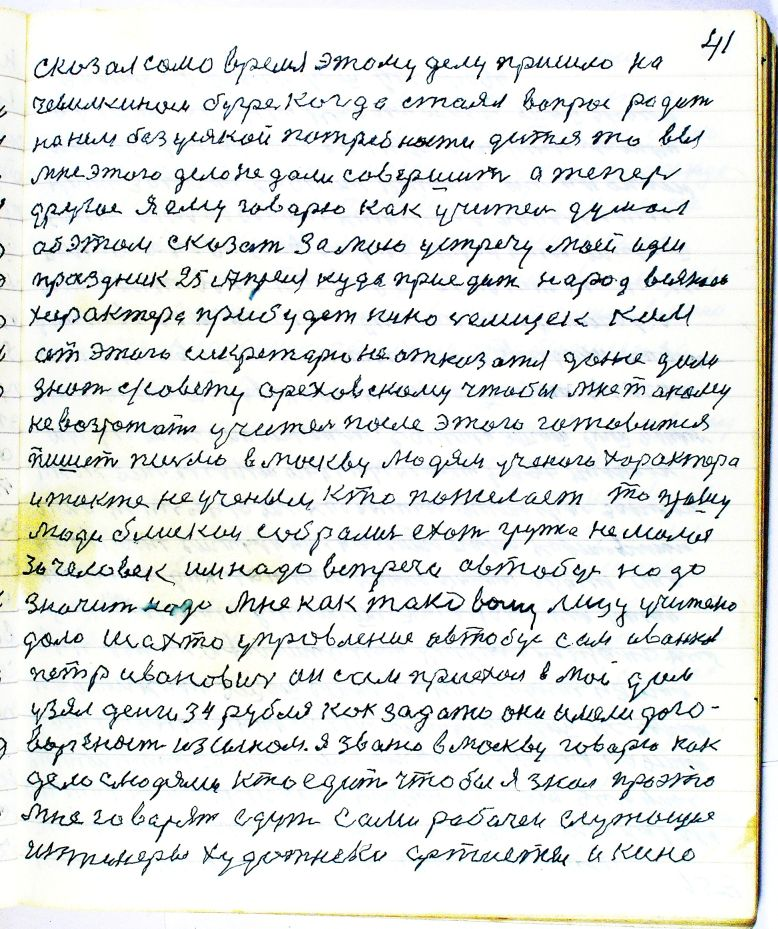 41
сказал само время этому делу пришло на
чевилкином бугре. Когда стаял вопрос радит
на нем без усякой потребности дитя то вы
мне этого дело не дали совершить а тепер
другое я ему говарю как учител думал
об этом сказат за мою устречу моей идеи
праздник 25 Апреля куда приедит народ всякого
характера прибудет кино
от этого секретарь не отказался даже дали
знат с/совету ореховскому чтобы мне такому
не возрожат учител после этого готовится
пишет писмо в москву людям ученого характера
и также не ученым кто пожелает то прошу
люди близкои собрались ехат группа не малоя
человек им надо встреча автобус надо
значит надо мне как таковому лицу учителю
дало шахто управление автобус сам иванков
петр иванович он сам приехал в мой дом
узял денги 34 рубля как задато они имели дого-
вореност из сыном. я званю в москву говарю как
дело с людями кто едит чтобы я знал проэто
мне говарят едут сами рабочеи служащие
инженеры художнеки артисты и кино